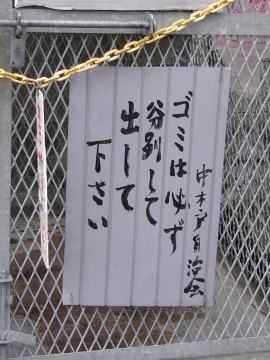 ゴミは必ず
分別して
出して
下さい
中木戸自治会